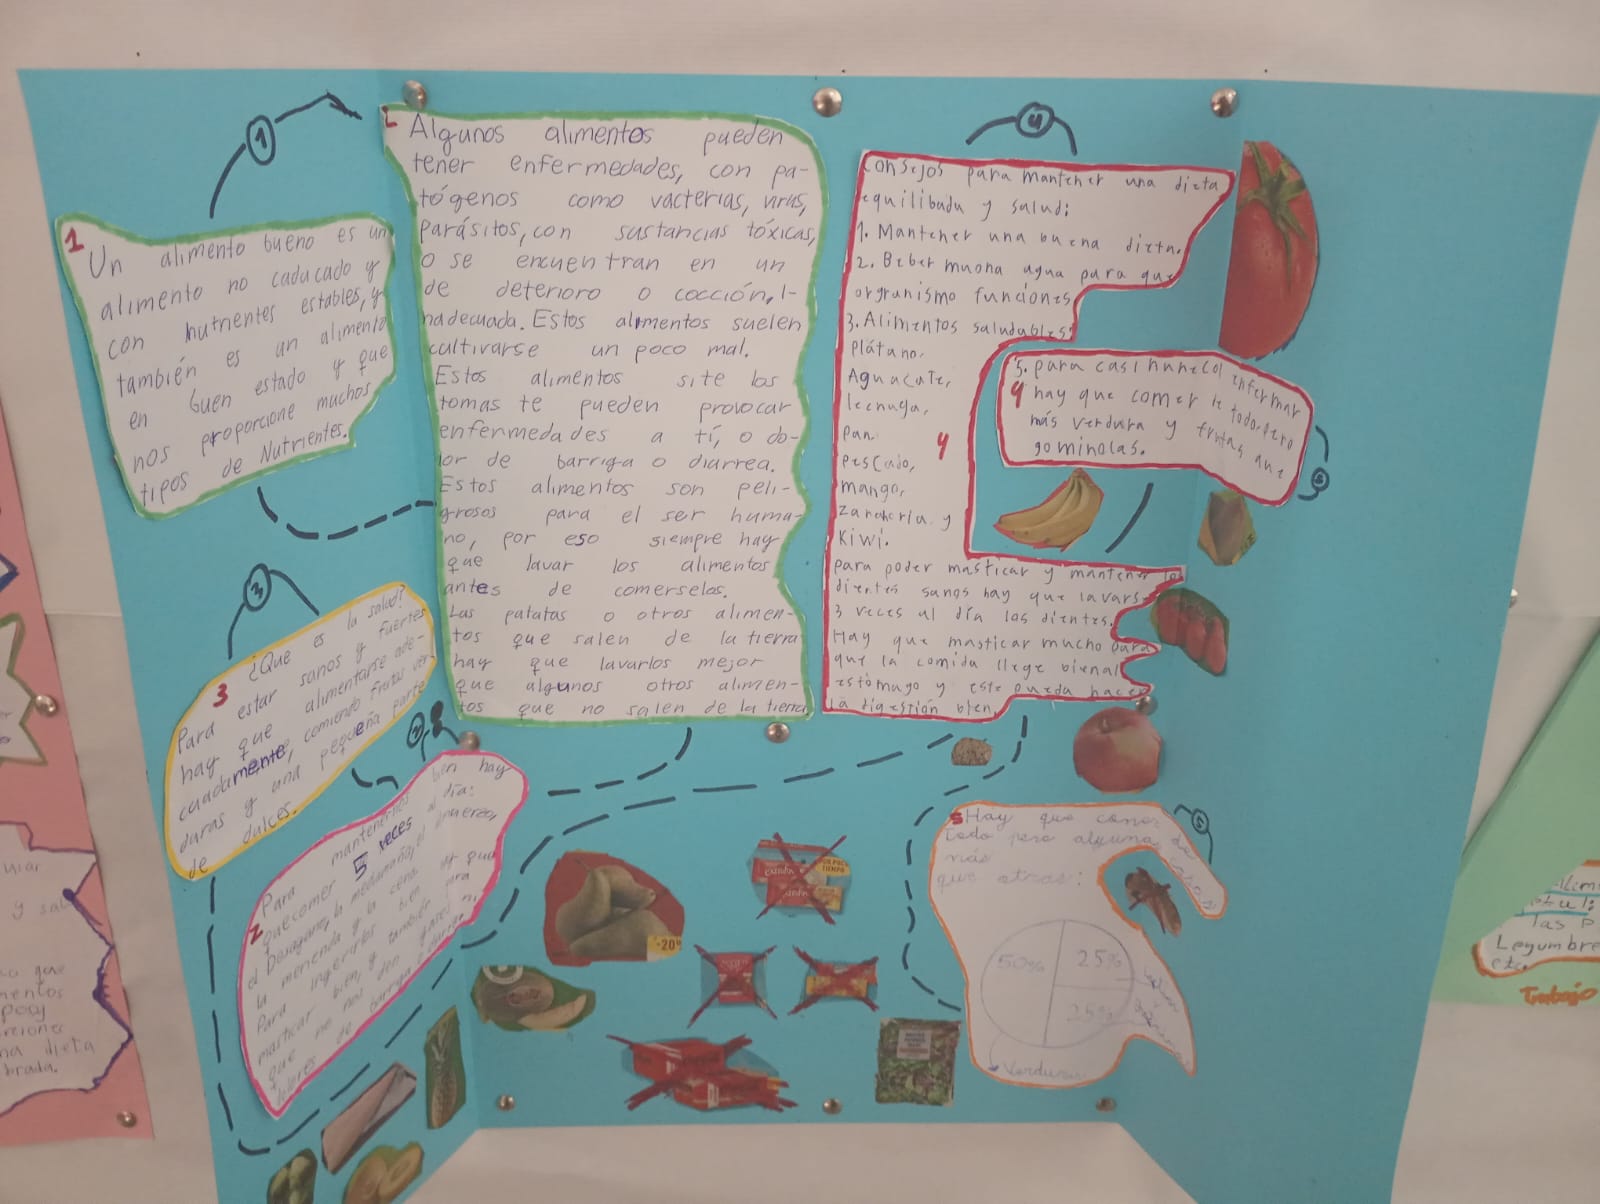 1
1
Un alimento bueno es un
alimento no caducado y
con nutrientes estables, y
también es un alimento
en buen estado y que
nos proporcione muchos
tipos de Nutrientes.
Algunos alimentos pueden
tener enfermedades, con pa-
tógenos como vacterias, virus,
parásitos, con sustancias tóxicas,
o se encuentran en un
de deterioro o cocción, I-
nadecuada. Estos alimentos suelen
cultivarse un poco mal.
Estos alimentos site los
tomas te pueden provocar
enfermedades a tí, o do-
lor de barriga o diarrea.
Estos alimentos son peli-
grosos para el ser huma-
no, por eso siempre hay
que lavar los alimentos
antes de comerselos.
Las patatas o otros alimen-
tos que salen de la tierra
hay que lavarlos mejor
que algunos otros alimen-
tos que no salen de la tierra
3
3
¿Que es la salud?
Para estar sanos y fuertes
hay que alimentarse ade-
cuadamente, comiendo frutas ver-
duras y una pequeña parte
de dulces.
2
2
Para mantenernos bien hay
que comer 5 veces al día:
el Desayuno, la mediamaña, el almuerzo,
la merienda y la cena.
Para ingerirlos bien
masticar bien, y también para
que no nos den gases ni
dolores de barriga o diarrea
4
Consejos para mantener una dieta
equilibada y salud:
1. Mantener una buena dieta.
2. Beber muona agua para que
orgranismo funciones
3. Alimentos saludables:
Plátano.
Aguacate,
lechuga,
Pan.
Pescado,
mango,
zanahoria y
Kiwi.
4
Para poder masticar y mantener
dientes sanos hay que lavars
3 veces al día los dientes.
Hay que masticar mucho para
que la comida llege bien al
estómago y este pueda hacer
la digestión bien.
5
5. para casi nunca enfermar
4 hay que comer de todo, pero
más verdura y frutas que
gominolas.
5
5 Hay que comer de
todo pero algunas cosas
más
que otras:
50% 25%
25%
Verduras
-20
Legumbre
etc.
Trabajo